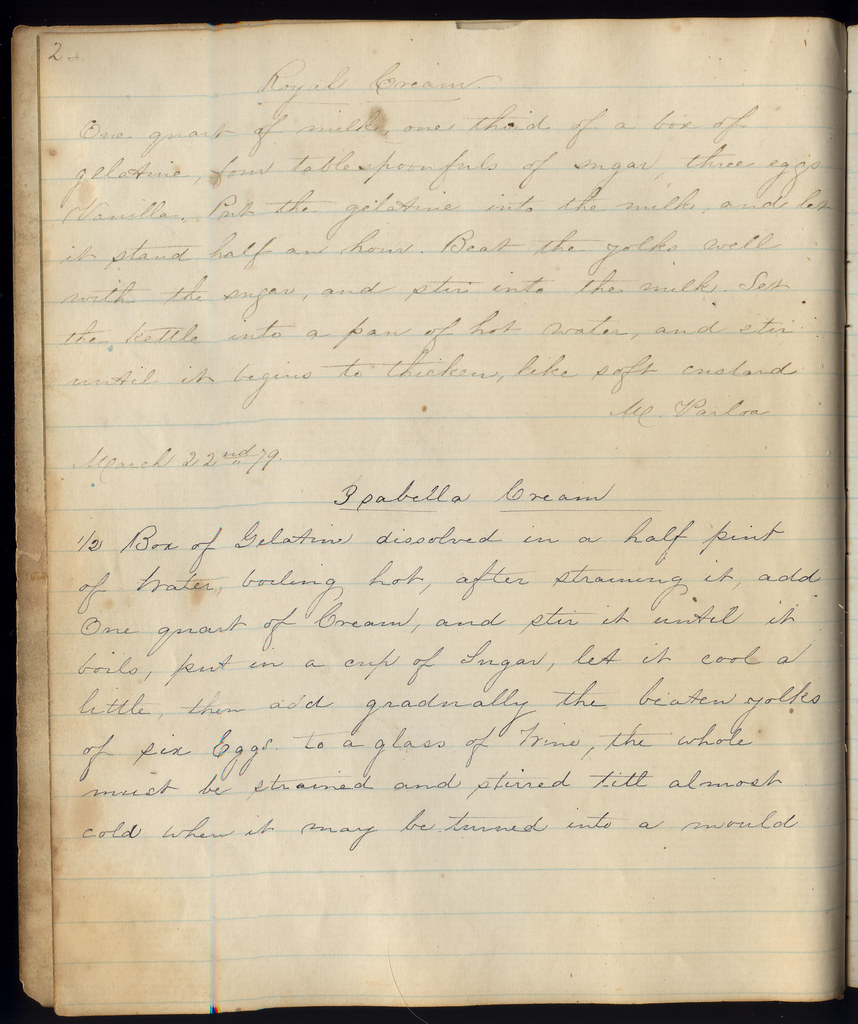 2
Royal Cream.
One quart of milk, one third of a box of
gelatine, four tablespoonfuls of sugar, three eggs
Vanilla. Put the gelatine into the milk, and let
it stand half an hour. Beat the yolks well
with the sugar, and stir into the milk. Set
the kettle into a pan of hot water, and stir
until it begins to thicken, like soft custard
M. Parloa
March 22nd 79.
Isabella Cream
1/2 Box of Gelatine dissolved in a half pint
of Water, boiling hot, after straining it, add
One quart of Cream, and stir it until it
boils, put in a cup of Sugar, let it cool a
little, then add gradually the beaten yolks
of six Eggs. to a glass of Wine, the whole
must be strained and stirred till almost
cold when it may be turned into a mould